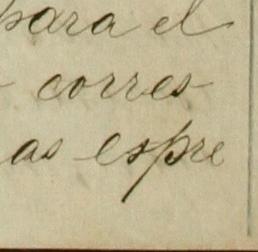 para el
- corres-
as espre